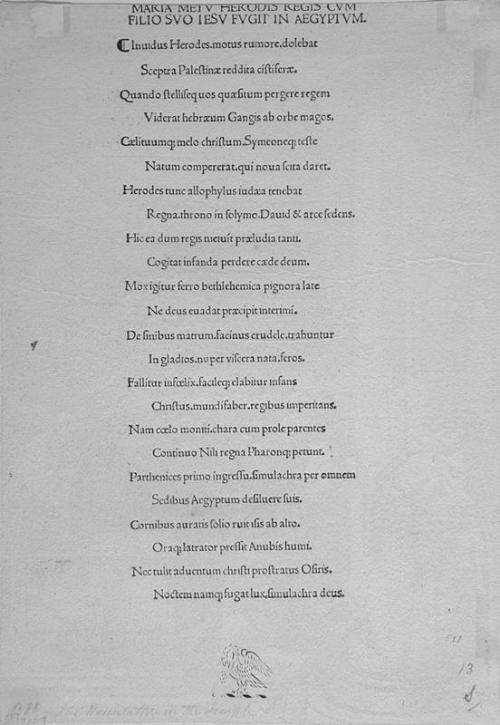 MARIA METV HERODIS REGIS CVM
FILIO SVO IESV FVGIT IN AEGYPTVM.
⁋ Inuidus Herodes.motus rumore.dolebat
Sceptra Palestinæ reddita cistiferæ.
Quando stellisequos quæsitum pergere regem
Viderat hebræum Gangis ab orbe magos.
Cælituumq; melo christum.Symeoneq; teste
Natum compererat.qui noua scita daret.
Herodes tunc allophylus iudæa tenebat
Regna.throno in solymo.Dauid & arce sedens.
Hic ea dum regis metuit præludia tanti.
Cogitat infanda perdere cæde deum.
Mox igitur ferro bethlehemica pignora late
Ne deus euadat præcipit interimi.
De sinibus matrum.facinus crudele.trahuntur
In gladios.nuper viscera nata.feros.
Fallitur infœlix.facileq; elabitur infans
Christus.mundifaber.regibus imperitans.
Nam cœlo moniti.chara cum prole parentes
Continuo Nili regna Pharonq; petunt.
Parthenices primo ingressu.simulachra per omnem
Sedibus Aegyptum desiluere suis.
Cornibus auratis solio ruit isis ab alto.
Oraq; latrator pressit Anubis humi.
Nec tulit aduentum christi prostratus Osiris.
Noctem namq; fugat lux.simulachra deus.
13